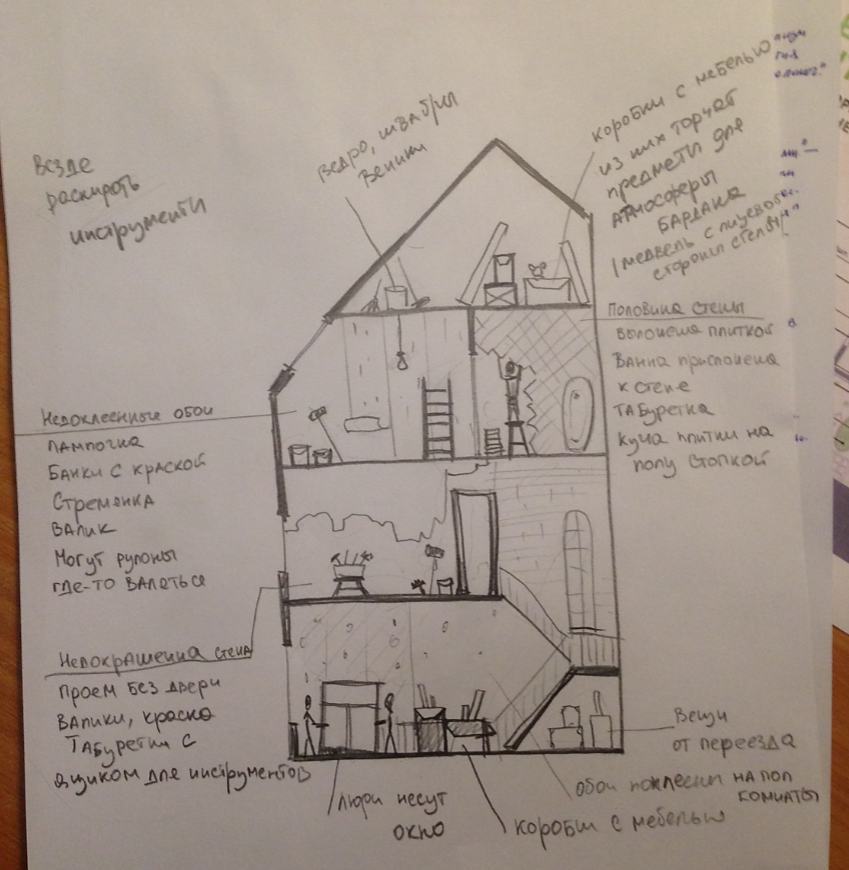 Везде
раскидать
инструменти
ведро, швабры
веники
коробки с мебелью
из них торчат
предмети для
атмосферы
бардака
медведь с лицевой
стороны
Половина стены
выложена плиткой
Ванна прислонена
к стене
Табуретка
куча плитки на
полу стопкой
Недоклеенные обои
лампочка
Банки с краской
Стремянка
Валик
Могут рулоны
где-то валаться
Непокрашенна стена
Проем без двери
Валики, краска
Табуретки с
ящиком для инструментов
люди несут
окно
коробки с мебелью
обои поклеени на пол
комнаты
Вещи
от переезда